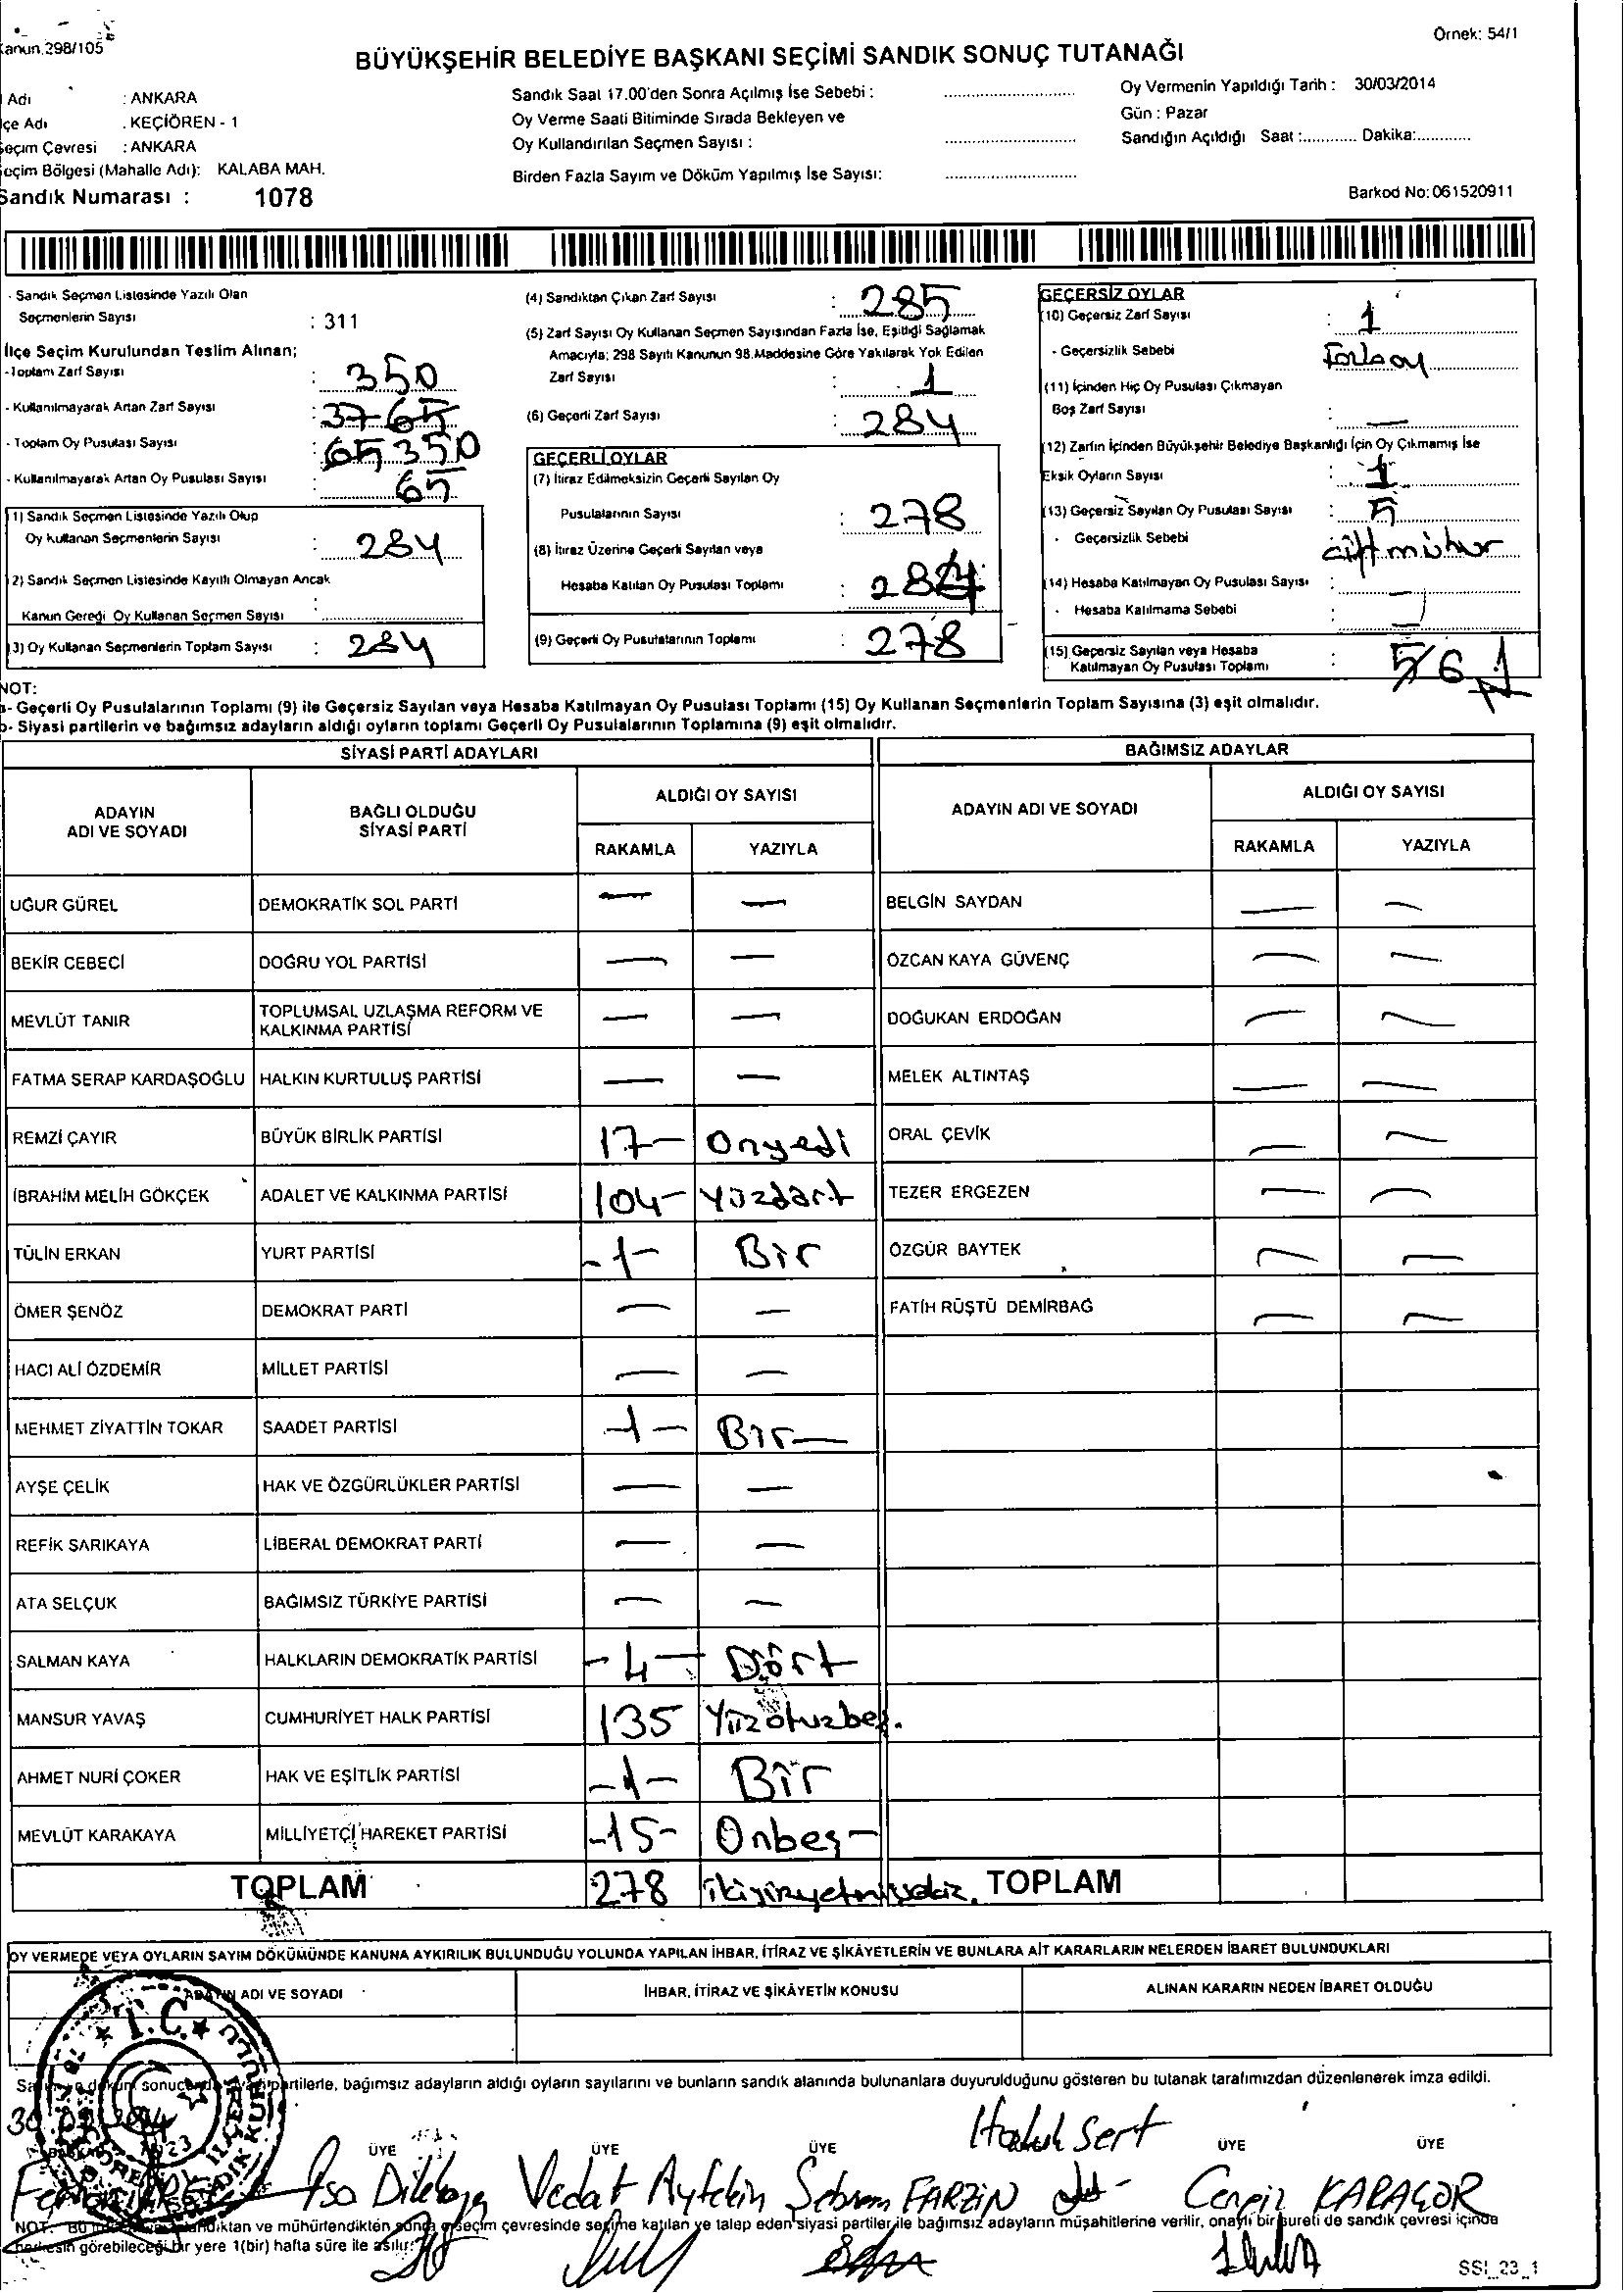 Kanun.298/105
Örnek: 54/1
BÜYÜKŞEHİR BELEDİYE BAŞKANI SEÇİMİ SANDIK SONUÇ TUTANAĞI
Adı : ANKARA
çe Adı . KEÇİÖREN - 1
eçim Çevresi : ANKARA
eçim Bölgesi (Mahalle Adı): KALABA MAH.
Sandık Numarası : 1078
Sandık Saat 17.00'den Sonra Açılmış İse Sebebi :
Oy Verme Saati Bitiminde Sırada Bekleyen ve
Oy Kullandırılan Seçmen Sayısı :
Birden Fazla Sayım ve Döküm Yapılmış İse Sayısı:
Oy Vermenin Yapıldığı Tarih : 30/03/2014
Gün : Pazar
Sandığın Açıldığı Saat :............ Dakika:............
Barkod No: 061520911
- Sandık Seçmen Listesinde Yazılı Olan
Seçmenlerin Sayısı : 311
İlçe Seçim Kurulundan Teslim Alınan;
-Toplam Zarf Sayısı : 350
- Kullanılmayarak Artan Zarf Sayısı : 37 65
- Toplam Oy Pusulası Sayısı : 65 350
- Kullanılmayarak Artan Oy Pusulası Sayısı : 65
1) Sandık Seçmen Listesinde Yazılı Olup
Oy kullanan Seçmenlerin Sayısı : 284
2) Sandık Seçmen Listesinde Kayıtlı Olmayan Ancak
Kanun Gereği Oy Kullanan Seçmen Sayısı :
3) Oy Kullanan Seçmenlerin Toplam Sayısı : 284
(4) Sandıktan Çıkan Zarf Sayısı : 285
(5) Zarf Sayısı Oy Kullanan Seçmen Sayısından Fazla İse, Eşitliği Sağlamak
Amacıyla; 298 Sayılı Kanunun 98.Maddesine Göre Yakılarak Yok Edilen
Zarf Sayısı : 1
(6) Geçerli Zarf Sayısı : 284
GEÇERLİ OYLAR
(7) İtiraz Edilmeksizin Geçerli Sayılan Oy
Pusulalarının Sayısı : 278
(8) İtiraz Üzerine Geçerli Sayılan veya
Hesaba Katılan Oy Pusulası Toplamı : 284
(9) Geçerli Oy Pusulalarının Toplamı : 278
GEÇERSİZ OYLAR
(10) Geçersiz Zarf Sayısı : 1
- Geçersizlik Sebebi Fazlaoy
(11) İçinden Hiç Oy Pusulası Çıkmayan
Boş Zarf Sayısı : —
(12) Zarfın İçinden Büyükşehir Belediye Başkanlığı İçin Oy Çıkmamış İse
Eksik Oyların Sayısı : 1
(13) Geçersiz Sayılan Oy Pusulası Sayısı : 5
- Geçersizlik Sebebi çift mühür
(14) Hesaba Katılmayan Oy Pusulası Sayısı : —
- Hesaba Katılmama Sebebi : —
(15) Geçersiz Sayılan veya Hesaba
Katılmayan Oy Pusulası Toplamı : 5/6
NOT:
a- Geçerli Oy Pusulalarının Toplamı (9) ile Geçersiz Sayılan veya Hesaba Katılmayan Oy Pusulası Toplamı (15) Oy Kullanan Seçmenlerin Toplam Sayısına (3) eşit olmalıdır.
b- Siyasi partilerin ve bağımsız adayların aldığı oyların toplamı Geçerli Oy Pusulalarının Toplamına (9) eşit olmalıdır.
SİYASİ PARTİ ADAYLARI BAĞIMSIZ ADAYLAR
ADAYIN ADI VE SOYADI BAĞLI OLDUĞU SİYASİ PARTİ ALDIĞI OY SAYISI ADAYIN ADI VE SOYADI ALDIĞI OY SAYISI
RAKAMLA YAZIYLA RAKAMLA YAZIYLA
UĞUR GÜREL DEMOKRATİK SOL PARTİ — — BELGİN SAYDAN — —
BEKİR CEBECİ DOĞRU YOL PARTİSİ — — ÖZCAN KAYA GÜVENÇ — —
MEVLÜT TANIR TOPLUMSAL UZLAŞMA REFORM VE KALKINMA PARTİSİ — — DOĞUKAN ERDOĞAN — —
FATMA SERAP KARDAŞOĞLU HALKIN KURTULUŞ PARTİSİ — — MELEK ALTINTAŞ — —
REMZİ ÇAYIR BÜYÜK BİRLİK PARTİSİ 17— Onyedi ORAL ÇEVİK — —
İBRAHİM MELİH GÖKÇEK ADALET VE KALKINMA PARTİSİ 104- Yüzdört TEZER ERGEZEN — —
TÜLİN ERKAN YURT PARTİSİ -1- Bir ÖZGÜR BAYTEK — —
ÖMER ŞENÖZ DEMOKRAT PARTİ — — FATİH RÜŞTÜ DEMİRBAĞ — —
HACI ALİ ÖZDEMİR MİLLET PARTİSİ — —
MEHMET ZİYATTİN TOKAR SAADET PARTİSİ -1- Bir—
AYŞE ÇELİK HAK VE ÖZGÜRLÜKLER PARTİSİ — —
REFİK SARIKAYA LİBERAL DEMOKRAT PARTİ — —
ATA SELÇUK BAĞIMSIZ TÜRKİYE PARTİSİ — —
SALMAN KAYA HALKLARIN DEMOKRATİK PARTİSİ -4- Dört
MANSUR YAVAŞ CUMHURİYET HALK PARTİSİ 135 Yüzotuzbeş.
AHMET NURİ ÇOKER HAK VE EŞİTLİK PARTİSİ -1- Bir
MEVLÜT KARAKAYA MİLLİYETÇİ HAREKET PARTİSİ -15- Onbeş-
TOPLAM 278 ikiyüzyetmişsekiz. TOPLAM
OY VERMEDE VEYA OYLARIN SAYIM DÖKÜMÜNDE KANUNA AYKIRILIK BULUNDUĞU YOLUNDA YAPILAN İHBAR, İTİRAZ VE ŞİKÂYETLERİN VE BUNLARA AİT KARARLARIN NELERDEN İBARET BULUNDUKLARI
ADAYIN ADI VE SOYADI İHBAR, İTİRAZ VE ŞİKÂYETİN KONUSU ALINAN KARARIN NEDEN İBARET OLDUĞU
T.C.
partilerle, bağımsız adayların aldığı oyların sayılarını ve bunların sandık alanında bulunanlara duyurulduğunu gösteren bu tutanak tarafımızdan düzenlenerek imza edildi.
Haluk Sert
ÜYE ÜYE ÜYE ÜYE ÜYE
Vedat Aytekin FARZİN Cengiz KARAGÖR
NOT: ve mühürlendikten sonra seçim çevresinde seçime katılan ve talep eden siyasi partiler ile bağımsız adayların müşahitlerine verilir, onaylı bir sureti de sandık çevresi içinde
herkesin görebileceği bir yere 1(bir) hafta süre ile asılır.
SSI_23_1